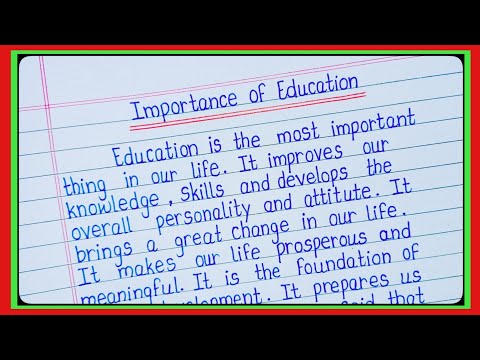 Importance of Education
Education is the most important
thing in our life. It improves our
knowledge, skills and develops the
overall personality and attitute. It
brings a great change in our life.
It makes our life prosperous and
meaningful. It is the foundation of
development. It prepares us
said that